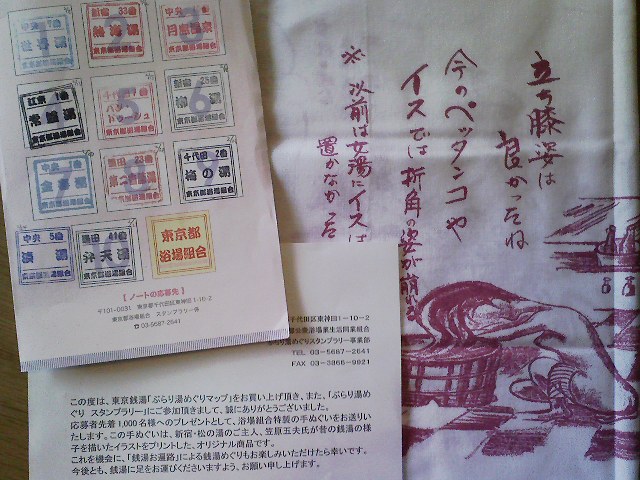 新宿 33番
熱海湯
東京都浴場組合
月島温泉
東京都浴場組合
江東 1番
常盤湯
東京都浴場組合
東京都浴場組合
新宿 25番
柳湯
東京都浴場組合
中央 1番
金春湯
東京都浴場組合
墨田 23番
東京都浴場組合
千代田 2番
梅の湯
東京都浴場組合
中央 5番
湊湯
東京都浴場組合
弁天湯
東京都浴場組合
東京都
浴場組合
【ノートの応募先】
〒101-0031 東京都千代田区東神田1-10-2
東京都浴場組合 スタンプラリー係
☎03-5687-2641
立ち膝姿は
良かったね
今のペッタンコや
イスでは折角の姿が崩れる
※以前は女湯にイスは
置かなかった
千代田区東神田1-10-2
浴場業生活同業組合
ぶらり湯めぐりスタンプラリー事業部
TEL 03-5687-2641
FAX 03-3866-9921
この度は、東京銭湯「ぶらり湯めぐりマップ」をお買い上げ頂き、また、「ぶらり湯め
ぐり スタンプラリー」にご参加頂きまして、誠にありがとうございました。
応募者先着1,000名様へのプレゼントとして、浴場組合特製の手ぬぐいをお送りい
たします。この手ぬぐいは、新宿・松の湯のご主人、笠原五夫氏が昔の銭湯の様
子を描いたイラストをプリントした、オリジナル商品です。
これを機会に、「銭湯お遍路」による銭湯めぐりもお楽しみいただけたら幸いです。
今後とも、銭湯に足をお運びくださいますよう、お願い申し上げます。